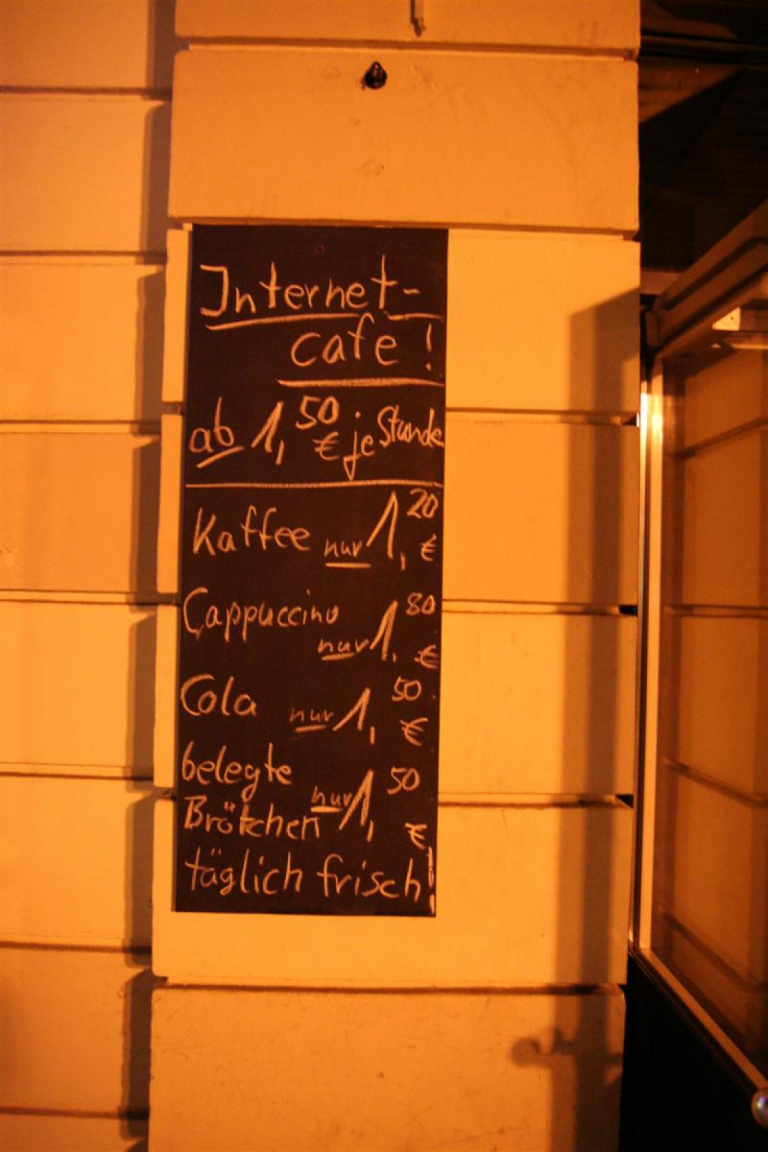 Internet-
cafe!
ab 1,50 € je Stunde
Kaffee nur 1,20 €
Cappuccino
nur 1,80 €
Cola nur 1,50 €
belegte
Brötchen nur 1,50 €
täglich frisch!